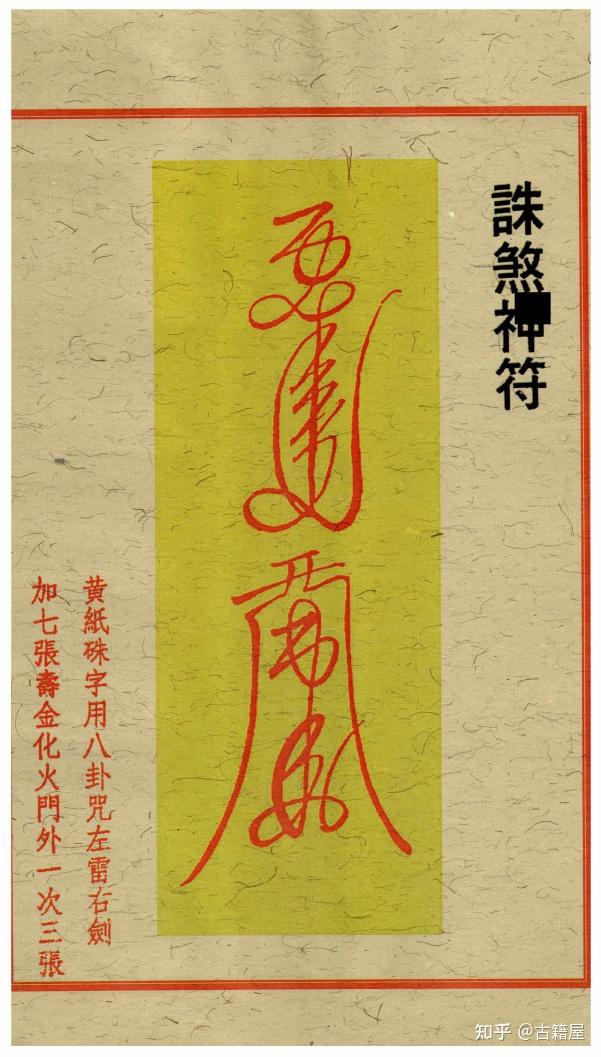 誅煞神符
黄紙硃字用八卦咒左雷右劍
加七張壽金化火門外一次三張
知乎 @古籍屋